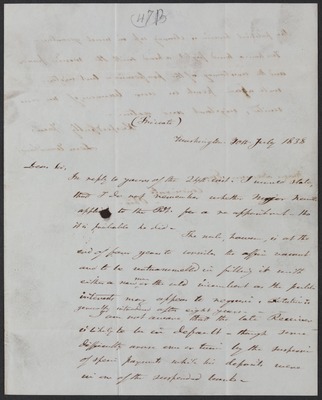 (47B)
(Private)
Washington 30th July 1838
Dear Sir,
In reply to yours of the 24th inst. I must state,
that I do not remember whether Major
applied to the for a re appointment - tho
it is probable he did.
The rule, however, is at the
end of four years to consider the affair vacant
and to be untrammelled in filling it with
either a new man, or the old incumbent as the public
interests may appear to require. Rotation is
generally intended after eight years.
I am not aware that the late Receiver
is likely to be in Default - though some
Difficulty arose once or twice by the suspension
of specie payments while his deposits were
in one of the suspended banks -